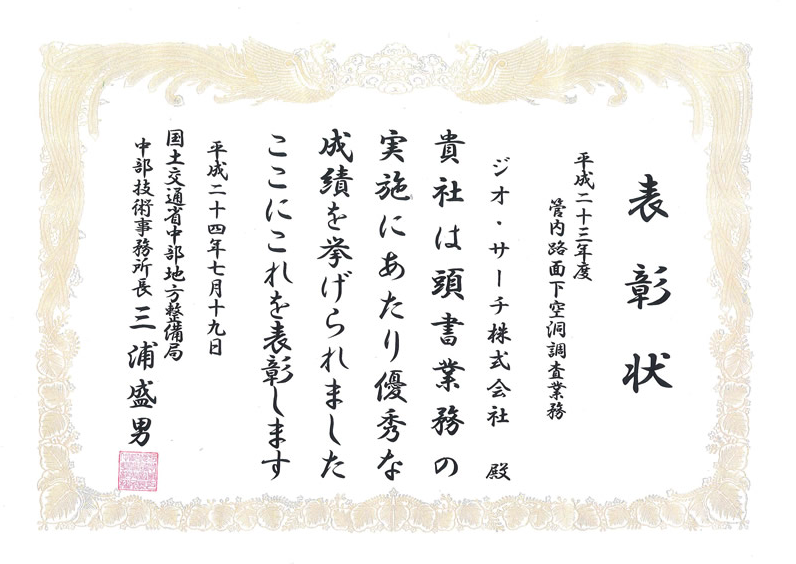 表彰状
平成二十三年度
管内路面下空洞調査業務
ジオ・サーチ株式会社 殿
貴社は頭書業務の
実施にあたり優秀な
成績を挙げられました
ここにこれを表彰します
平成二十四年七月十九日
国土交通省中部地方整備局
中部技術事務所長 三浦盛男